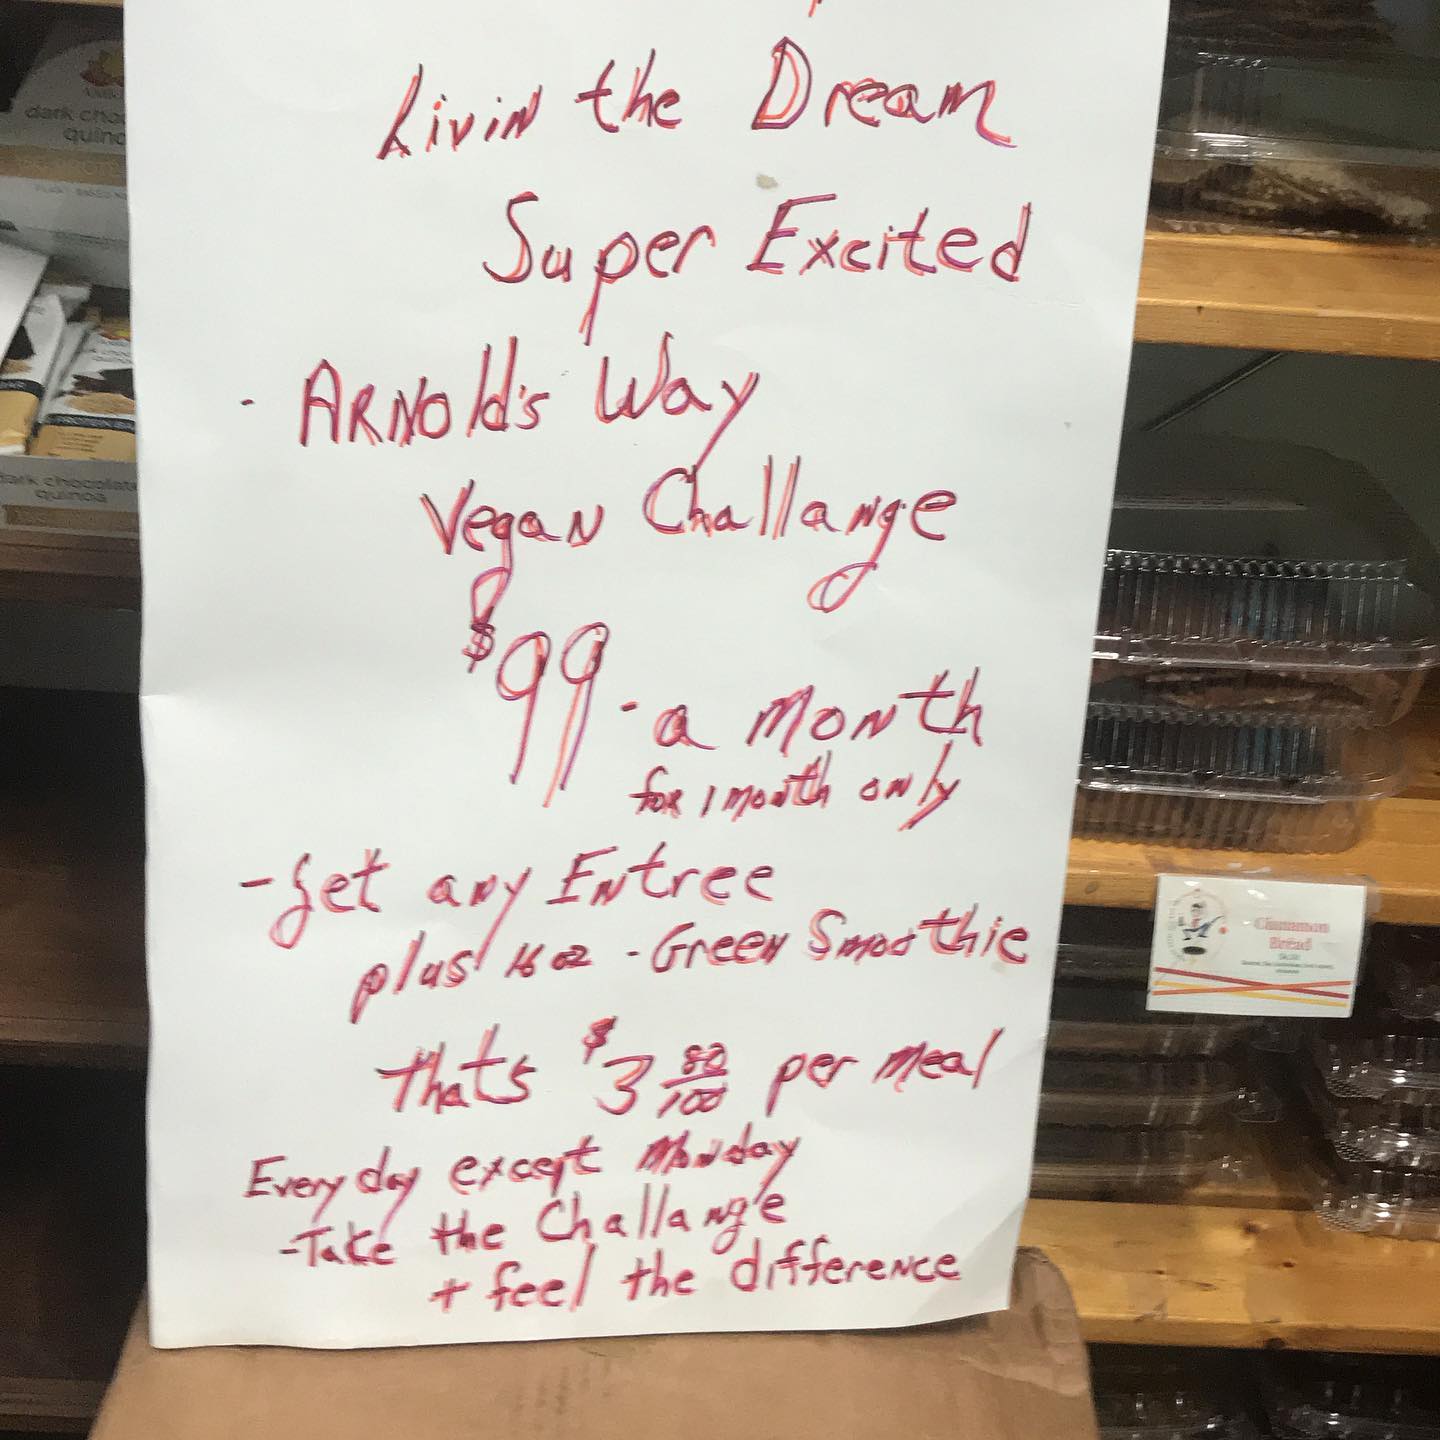 Livin the Dream
Super Excited
- ARNOld's Way
Vegan Challange
$99 - a month
for 1 month only
- Get any Entree
plus 16 oz - Green Smoothie
thats $3 80/100 per meal
Every day except Monday
- Take the Challange
+ feel the difference
dark choc
quino
dark chocolate
quinoa
Cinnamon
Bread